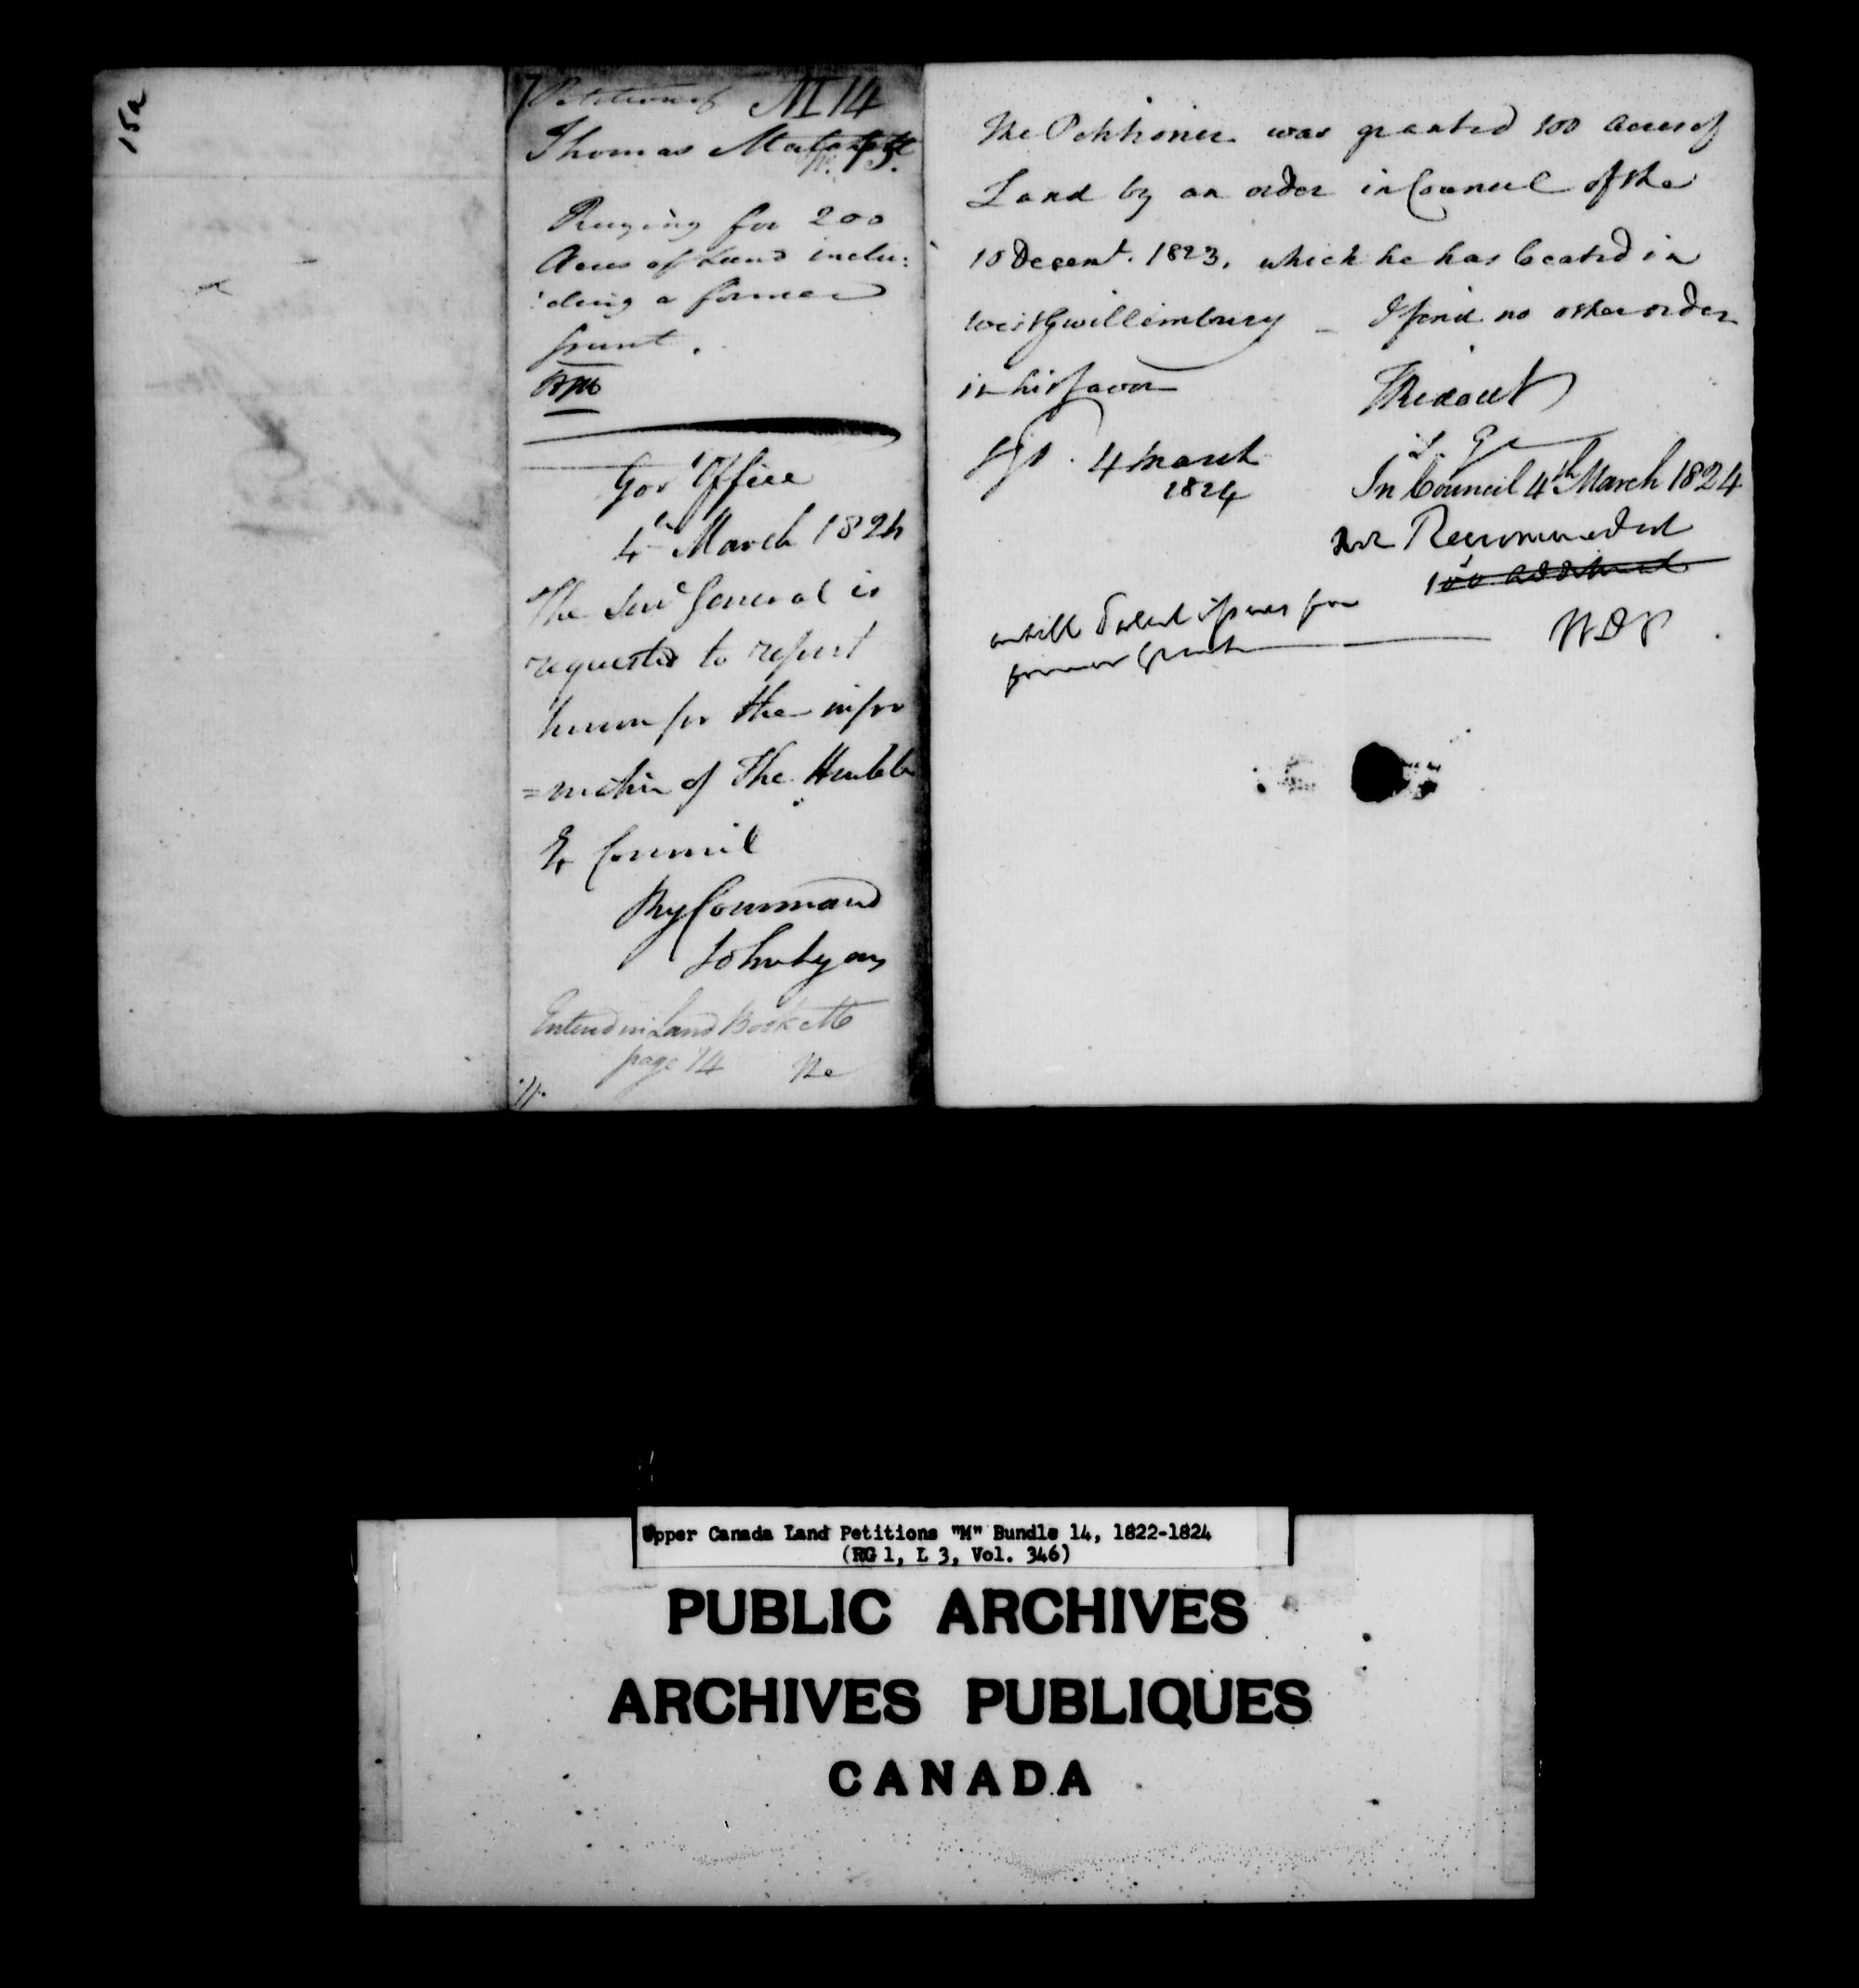 15a
Petition of M 14
Thomas
N. 75.
Praying for 200
Acres of Land inclu:
:ding a former
grant.
Gov.t Office
4th March 1824
The Surv.r General is
requested to report
hereon for the infor
=mation of The Honble
Ex Council
By Command
John Lyons
Entered in Land Book M
page 14
The Petitioner was granted 100 acres of
Land by an order in Council of the
10 Decemr. 1823, which he has located in
West Gwillimbury _ I find no other order
in his favor
T Ridout
S. G
4 March
1824
In Council 4th March 1824
not Recommended
100 additional
untill Patent issues for
former Grant
WDP
Upper Canada Land Petitions "M" Bundle 14, 1822-1824
(RG 1, L 3, Vol. 346)
PUBLIC ARCHIVES
ARCHIVES PUBLIQUES
CANADA